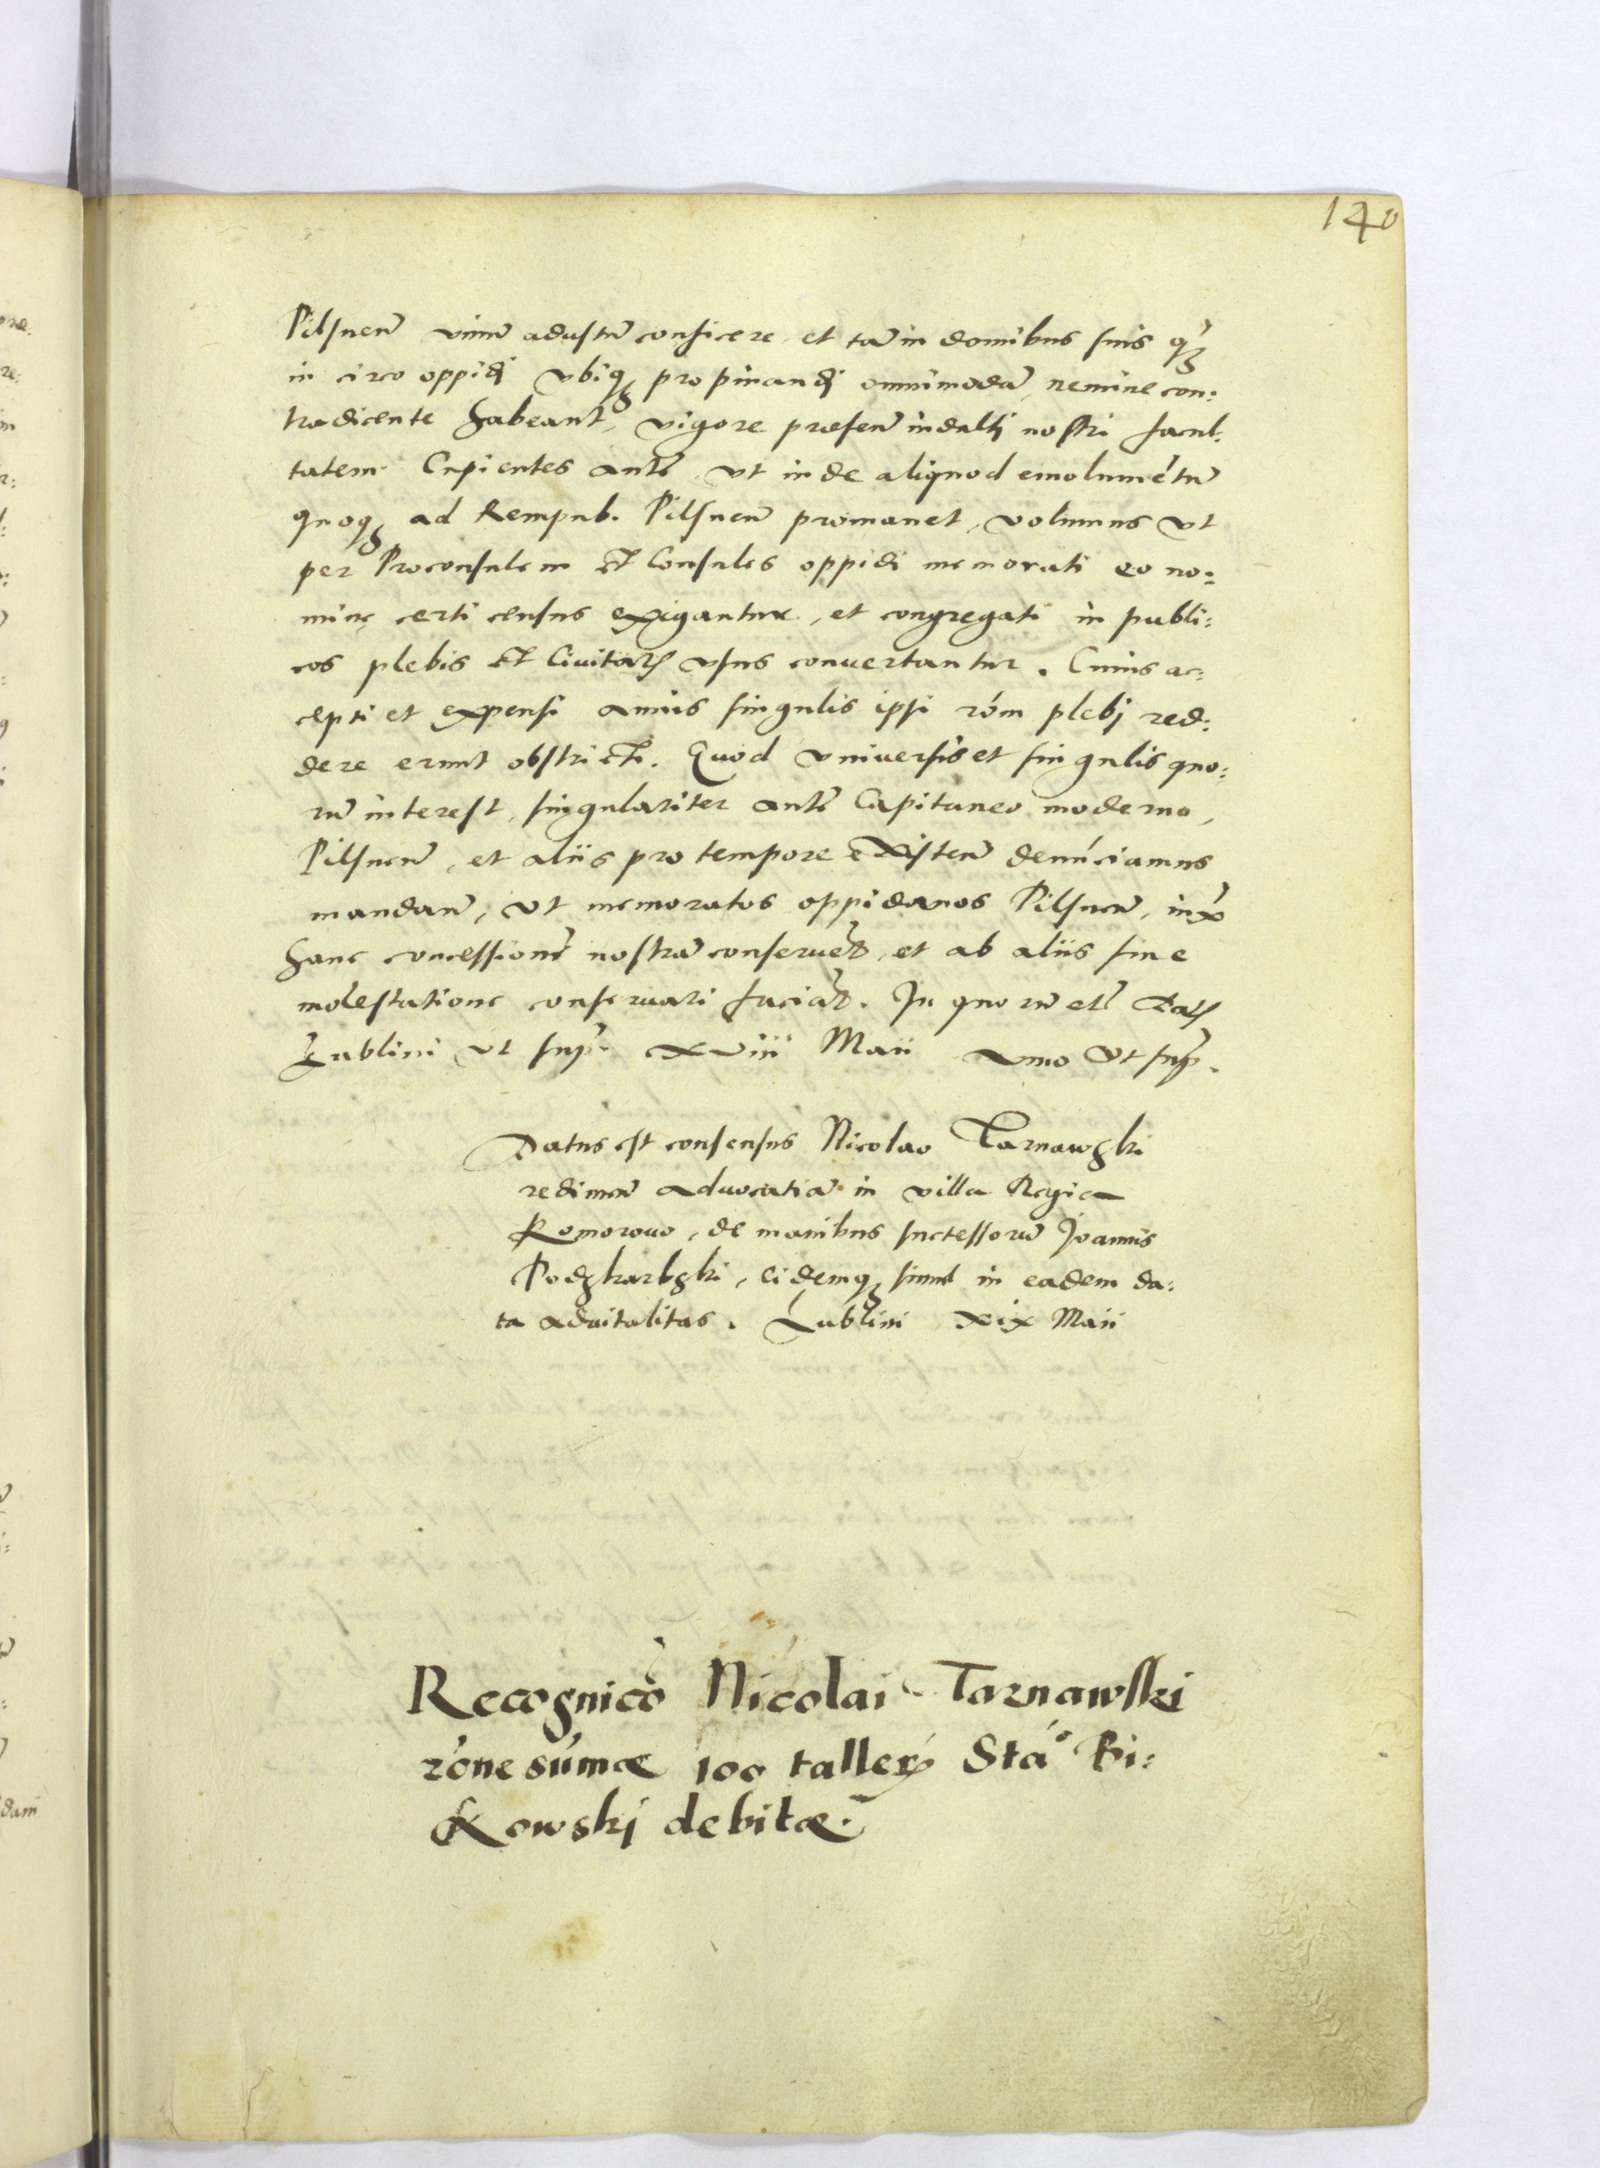 140
Pilsnen̄ vinū adustū conficere et tā in domibus suis qꝫ
in circo oppidi vbiqꝫ propinandi omnimodā, nemine con:
tradicente habeant, vigore praesen̄ indulti nostri facul:
tatem. Cupientes autē, vt inde aliquod emolumētū
quoqꝫ ad Rempub. Pilsnen̄ promanet, volumus vt
per Proconsulem et Consules oppidi memorati eo no:
mine certi census exigantur, et congregati in publi:
cos plebis et Ciuitatis vsus conuertantur. Cuius ac:
cepti et expensi annis singulis ipsi rōm plebi red:
dere erunt obstricti. Quod vniuersis et singulis quo:
rū interest, singulariter autē Capitaneo moderno,
Pilsnen̄, et aliis pro tempore existen̄ denūciamus
mandan̄, vt memoratos oppidanos Pilsnen̄, iux̄
hanc concessionē nostrā conseruet, et ab aliis sine
molestatione conseruari faciat. In quorū etc̄ Datꝭ
Lublini vt supr. xviii Maii Anno vt supr.
Datus est consensus Nicolao Tarnawski
redimen̄ aduocatiā in villa Regia
Komorowo, de manibus successorū Joannis
Podskarbski, eidemqꝫ simul in eadem da:
ta aduitalitas. Lublini xix Maii
Recognicō Nicolai Tarnawski
rōne sūmae 100 taller̄ Sta° Bi:
kowski debitae.